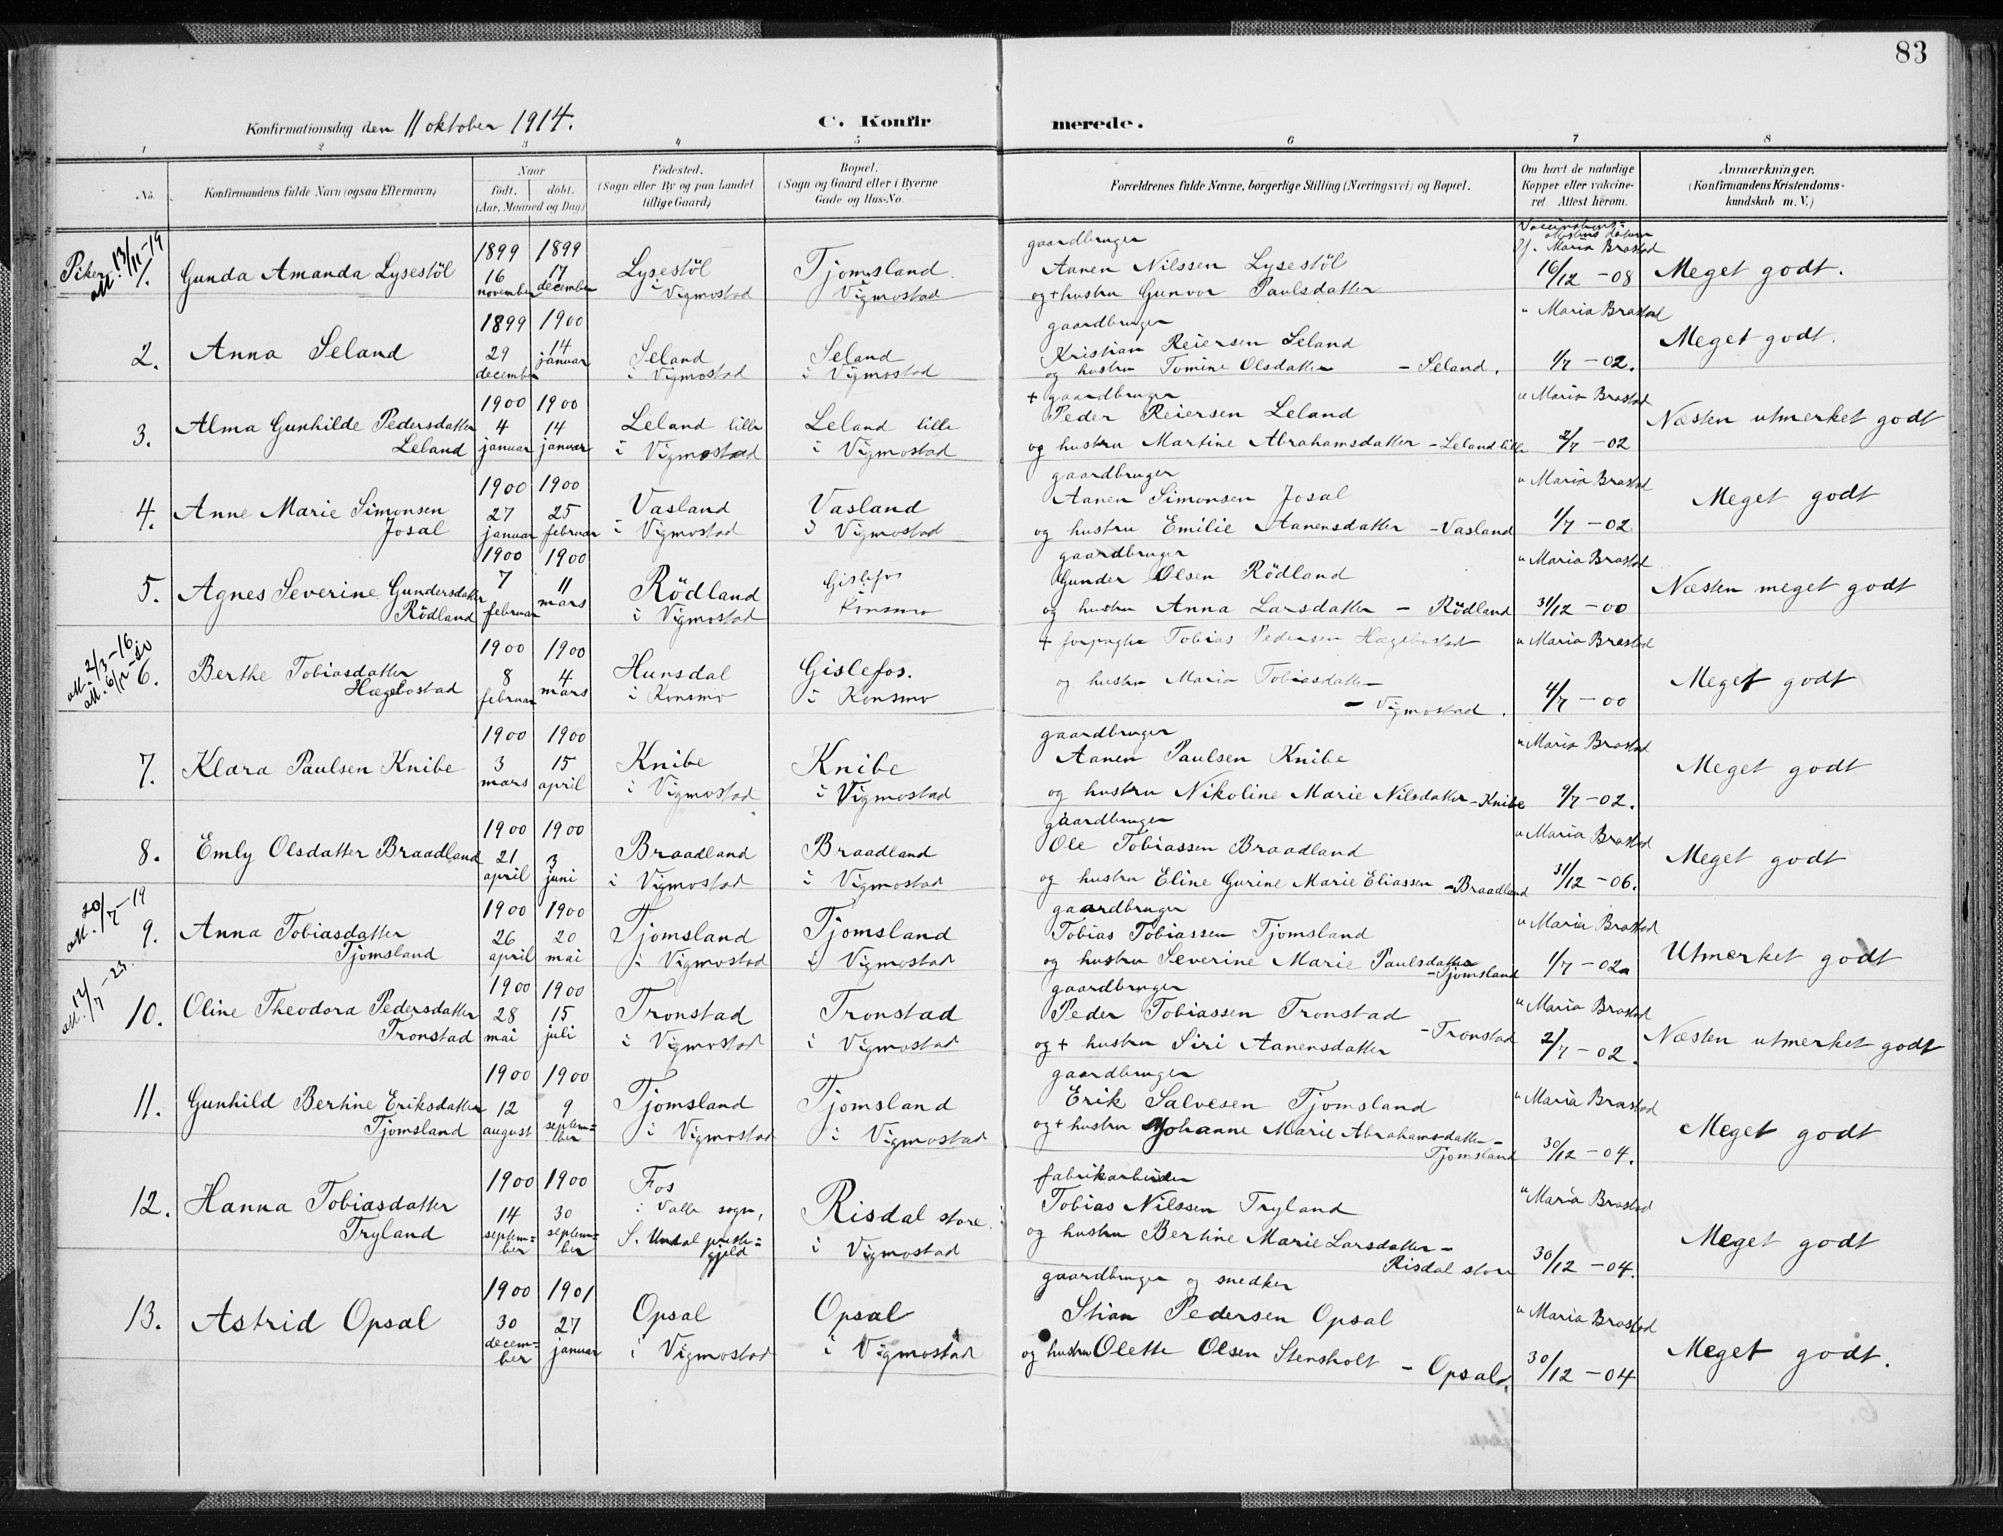 83
Konfirmationsdag den 11 oktober 1914. C. Konfirmerede.
1 2 3 4 5 6 7 8
No. Konfirmandens fulde Navn (ogsaa Efternavn) Naar født. døbt. (Aar, Maaned og Dag) Fødested. (Sogn eller By og paa Landet tillige Gaard) Bopæl. (Sogn og Gaard eller i Byerne Gade og Hus-No. Forældrenes fulde Navne, borgerlige Stilling (Næringsvei) og Bopæl. Om havt de naturlige Kopper eller vakcineret. Attest herom. Anmærkninger. (Konfirmandens Kristendomskundskab m. V.)
Piker att. 13/11-19
1. Gunda Amanda Lysestöl 1899 16 november 1899 17 december Lysestöl i Vigmostad Tjomsland Vigmostad
gaardbruger
Aanen Nilssen Lysestöl
og + hustru Gunvor Paulsdatter
Maria Brastad 16/12 -08 Meget godt.
2. Anna Seland 1899 29 december 1900 14 januar Seland i Vigmostad Seland i Vigmostad
gaardbruger
Kristian Reiersen Seland
og hustru Tomine Olsdatter - Seland.
" Maria Brastad 1/7 -02. Meget godt.
3. Alma Gunhilde Pedersdatter Leland 1900 4 januar 1900 14 januar Leland lille i Vigmostad Leland lille i Vigmostad
+ gaardbruger
Peder Reiersen Leland
og hustru Martine Abrahamsdatter - Leland lille
" Maria Brastad 2/7 -02 Næsten utmerket godt
4. Anne Marie Simonsen Josal 1900 27 januar 1900 25 februar Vasland i Vigmostad Vasland i Vigmostad
gaardbruger
Aanen Simonsen Josal
og hustru Emilie Aanensdatter - Vasland
" Maria Brastad 1/7 -02 Meget godt
5. Agnes Severine Gundersdatter Rödland 1900 7 februar 1900 11 mars Rödland i Vigmostad Gislefos Konsmo
gaardbruger
Gunder Olsen Rödland
og hustru Anna Larsdatter - Rödland
" Maria Brastad 31/12 -00 Næsten meget godt
att. 2/3-16 att. 6/12-20
6. Berthe Tobiasdatter Hægebostad 1900 8 februar 1900 4 mars Hunsdal i Konsmo Gislefos. i Konsmo
+ forpagter Tobias Pedersen Hægebostad
og hustru Maria Tobiasdatter
- Vigmostad.
" Maria Brastad 4/7 -00 Meget godt
7. Klara Paulsen Knibe 1900 3 mars 1900 15 april Knibe i Vigmostad Knibe i Vigmostad
gaardbruger
Aanen Paulsen Knibe
og hustru Nikoline Marie Nilsdatter - Knibe
" Maria Brastad 9/7 -02. Meget godt
8. Emly Olsdatter Braadland 1900 21 april 1900 3 juni Braadland i Vigmostad Braadland i Vigmostad
gaardbruger
Ole Tobiassen Braadland
og hustru Eline Gurine Marie Eliassen - Braadland
" Maria Brastad 31/12 -06. Meget godt
att. 20/7-19
9. Anna Tobiasdatter Tjomsland 1900 26 april 1900 20 mai Tjomsland i Vigmostad Tjomsland i Vigmostad
gaardbruger
Tobias Tobiassen Tjomsland
og hustru Severine Marie Paulsdatter - Tjomsland
" Maria Brastad 1/7 -02 Utmerket godt
att. 12/7-23.
10. Oline Theodora Pedersdatter Tronstad 1900 28 mai 1900 15 juli Tronstad i Vigmostad Tronstad i Vigmostad
gaardbruger
Peder Tobiassen Tronstad
og + hustru Siri Aanensdatter - Tronstad
" Maria Brastad 2/7 -02. Næsten utmerket godt
11. Gunhild Bertine Eriksdatter Tjomsland 1900 12 august 1900 9 september Tjomsland i Vigmostad Tjomsland i Vigmostad
gaardbruger
Erik Salvesen Tjomsland
og + hustru Johanne Marie Abrahamsdatter - Tjomsland
" Maria Brastad 30/12 -04. Meget godt
12. Hanna Tobiasdatter Tryland 1900 14 september 1900 30 september Fos i Valle sogn, S. Undal prestegjeld Risdal store i Vigmostad
fabrikarbeider
Tobias Nilssen Tryland
og hustru Bertine Marie Larsdatter - Risdal store
" Maria Brastad 30/12 -04. Meget godt
13. Astrid Opsal 1900 30 december 1901 27 januar Opsal i Vigmostad Opsal i Vigmostad
gaardbruger og snedker
Stian Pedersen Opsal
og hustru Olette Olsen Stensholt - Opsal.
" Maria Brastad 30/12 -04 Meget godt.